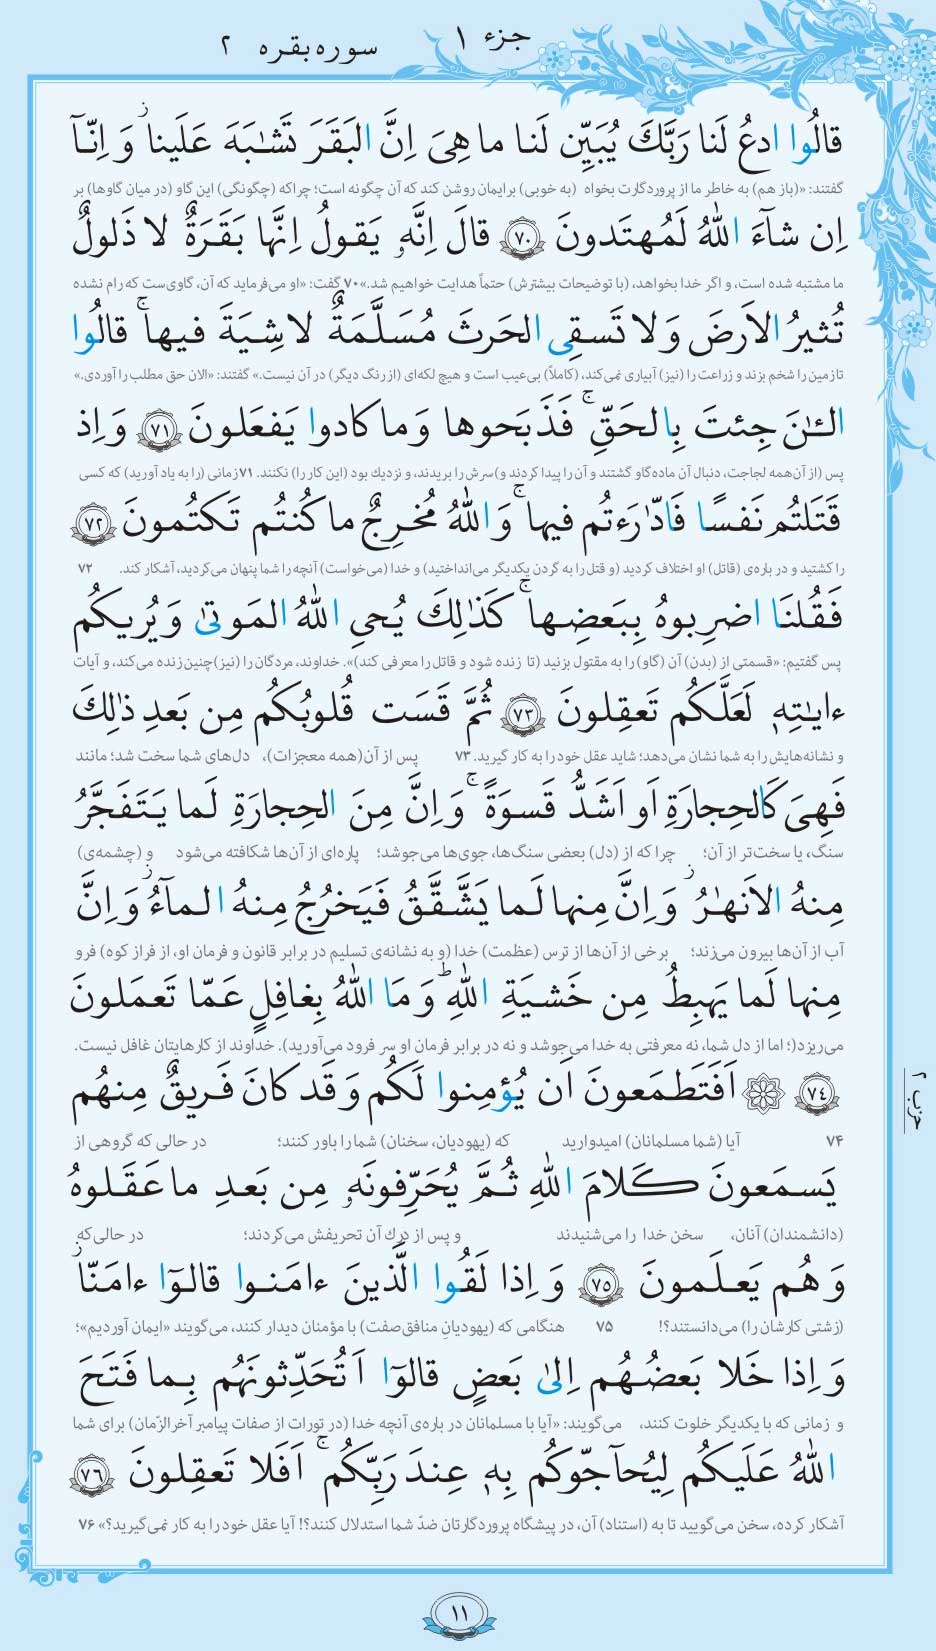 جزء ۱
سوره بقره ۲
قالُوا ادعُ لَنا رَبَّكَ يُبَيِّن لَنا ما هِىَ اِنَّ البَقَرَ تَشٰبَهَ عَلَينا ۖ وَ اِنّآ
گفتند: «(باز هم) به خاطر ما از پروردگارت بخواه (به خوبی) برایمان روشن کند که آن چگونه است؛ چراکه (چگونگی) این گاو (در میان گاوها) بر
اِن شآءَ اللّٰهُ لَمُهتَدونَ ﴿۷۰﴾ قالَ اِنَّهٗ يَقولُ اِنَّها بَقَرَةٌ لا ذَلولٌ
ما مشتبه شده است، و اگر خدا بخواهد، (با توضیحات بیشترش) حتماً هدایت خواهیم شد.» ۷۰ گفت: «او می‌فرماید که آن، گاوی‌ست که رام نشده
تُثيرُ الاَرضَ وَ لا تَسقِى الحَرثَ مُسَلَّمَةٌ لا شِيَةَ فيها ۚ قالُوا
تا زمین را شخم بزند و زراعت را (نیز) آبیاری نمی‌کند، (کاملاً) بی‌عیب است و هیچ لکه‌ای (از رنگ دیگر) در آن نیست.» گفتند: «الان حق مطلب را آوردی.»
الـٰٔنَ جِئتَ بِالحَقِّ ۚ فَذَبَحوها وَ ما كادوا يَفعَلونَ ﴿۷۱﴾ وَ اِذ
پس (از آن‌همه لجاجت، دنبال آن ماده‌گاو گشتند و آن را پیدا کردند و) سرش را بریدند، و نزدیك بود (این کار را) نکنند. ۷۱ زمانی (را به یاد آورید) که کسی
قَتَلتُم نَفسًا فَادّٰرَءتُم فيها ۖ وَ اللّٰهُ مُخرِجٌ ما كُنتُم تَكتُمونَ ﴿۷۲﴾
را کشتید و در باره‌ی (قاتل) او اختلاف کردید (و قتل را به گردن یکدیگر می‌انداختید) و خدا (می‌خواست) آنچه را شما پنهان می‌کردید، آشکار کند. ۷۲
فَقُلنَا اضرِبوهُ بِبَعضِها ۚ كَذٰلِكَ يُحىِ اللّٰهُ المَوتىٰ وَ يُريكُم
پس گفتیم: «قسمتی از (بدن) آن (گاو) را به مقتول بزنید (تا زنده شود و قاتل را معرفی کند)». خداوند، مردگان را (نیز) چنین زنده می‌کند، و آیات
ءايٰتِهٖ لَعَلَّكُم تَعقِلونَ ﴿۷۳﴾ ثُمَّ قَسَت قُلوبُكُم مِن بَعدِ ذٰلِكَ
و نشانه‌هایش را به شما نشان می‌دهد؛ شاید عقل خود را به کار گیرید. ۷۳ پس از آن (همه معجزات)، دل‌های شما سخت شد؛ مانند
فَهِىَ كَالحِجارَةِ اَو اَشَدُّ قَسوَةً ۚ وَ اِنَّ مِنَ الحِجارَةِ لَما يَتَفَجَّرُ
سنگ، یا سخت‌تر از آن؛ چرا که از (دل) بعضی سنگ‌ها، جوی‌ها می‌جوشد؛ پاره‌ای از آن‌ها شکافته می‌شود و (چشمه‌ی)
مِنهُ الاَنهٰرُ ۚ وَ اِنَّ مِنها لَما يَشَّقَّقُ فَيَخرُجُ مِنهُ المآءُ ۚ وَ اِنَّ
آب از آن‌ها بیرون می‌زند؛ برخی از آن‌ها از ترس (عظمت) خدا (و به نشانه‌ی تسلیم در برابر قانون و فرمان او، از فراز کوه) فرو
مِنها لَما يَهبِطُ مِن خَشيَةِ اللّٰهِ ۗ وَ مَا اللّٰهُ بِغافِلٍ عَمّا تَعمَلونَ
می‌ریزد(؛ اما از دل شما، نه معرفتی به خدا می‌جوشد و نه در برابر فرمان او سر فرود می‌آورید). خداوند از کارهایتان غافل نیست.
﴿۷۴﴾ ۞ اَفَتَطمَعونَ اَن يُؤمِنوا لَكُم وَ قَد كانَ فَريقٌ مِنهُم
۷۴ آیا (شما مسلمانان) امیدوارید که (یهودیان، سخنان) شما را باور کنند؛ در حالی که گروهی از
يَسمَعونَ كَلامَ اللّٰهِ ثُمَّ يُحَرِّفونَهٗ مِن بَعدِ ما عَقَلوهُ
(دانشمندان) آنان، سخن خدا را می‌شنیدند و پس از درك آن تحریفش می‌کردند؛ در حالی‌که
وَ هُم يَعلَمونَ ﴿۷۵﴾ وَ اِذا لَقُوا الَّذينَ ءامَنوا قالوٓا ءامَنّا
(زشتی کارشان را) می‌دانستند؟! ۷۵ هنگامی که (یهودیانِ منافق‌صفت) با مؤمنان دیدار کنند، می‌گویند «ایمان آوردیم»؛
وَ اِذا خَلا بَعضُهُم اِلىٰ بَعضٍ قالوٓا اَتُحَدِّثونَهُم بِما فَتَحَ
و زمانی که با یکدیگر خلوت کنند، می‌گویند: «آیا با مسلمانان در باره‌ی آنچه خدا (در تورات از صفات پیامبر آخرالزّمان) برای شما
اللّٰهُ عَلَيكُم لِيُحآجّوكُم بِهٖ عِندَ رَبِّكُم ۚ اَفَلا تَعقِلونَ ﴿۷۶﴾
آشکار کرده، سخن می‌گویید تا به (استناد) آن، در پیشگاه پروردگارتان ضدّ شما استدلال کنند؟! آیا عقل خود را به کار نمی‌گیرید؟» ۷۶
حزب ۲
۱۱